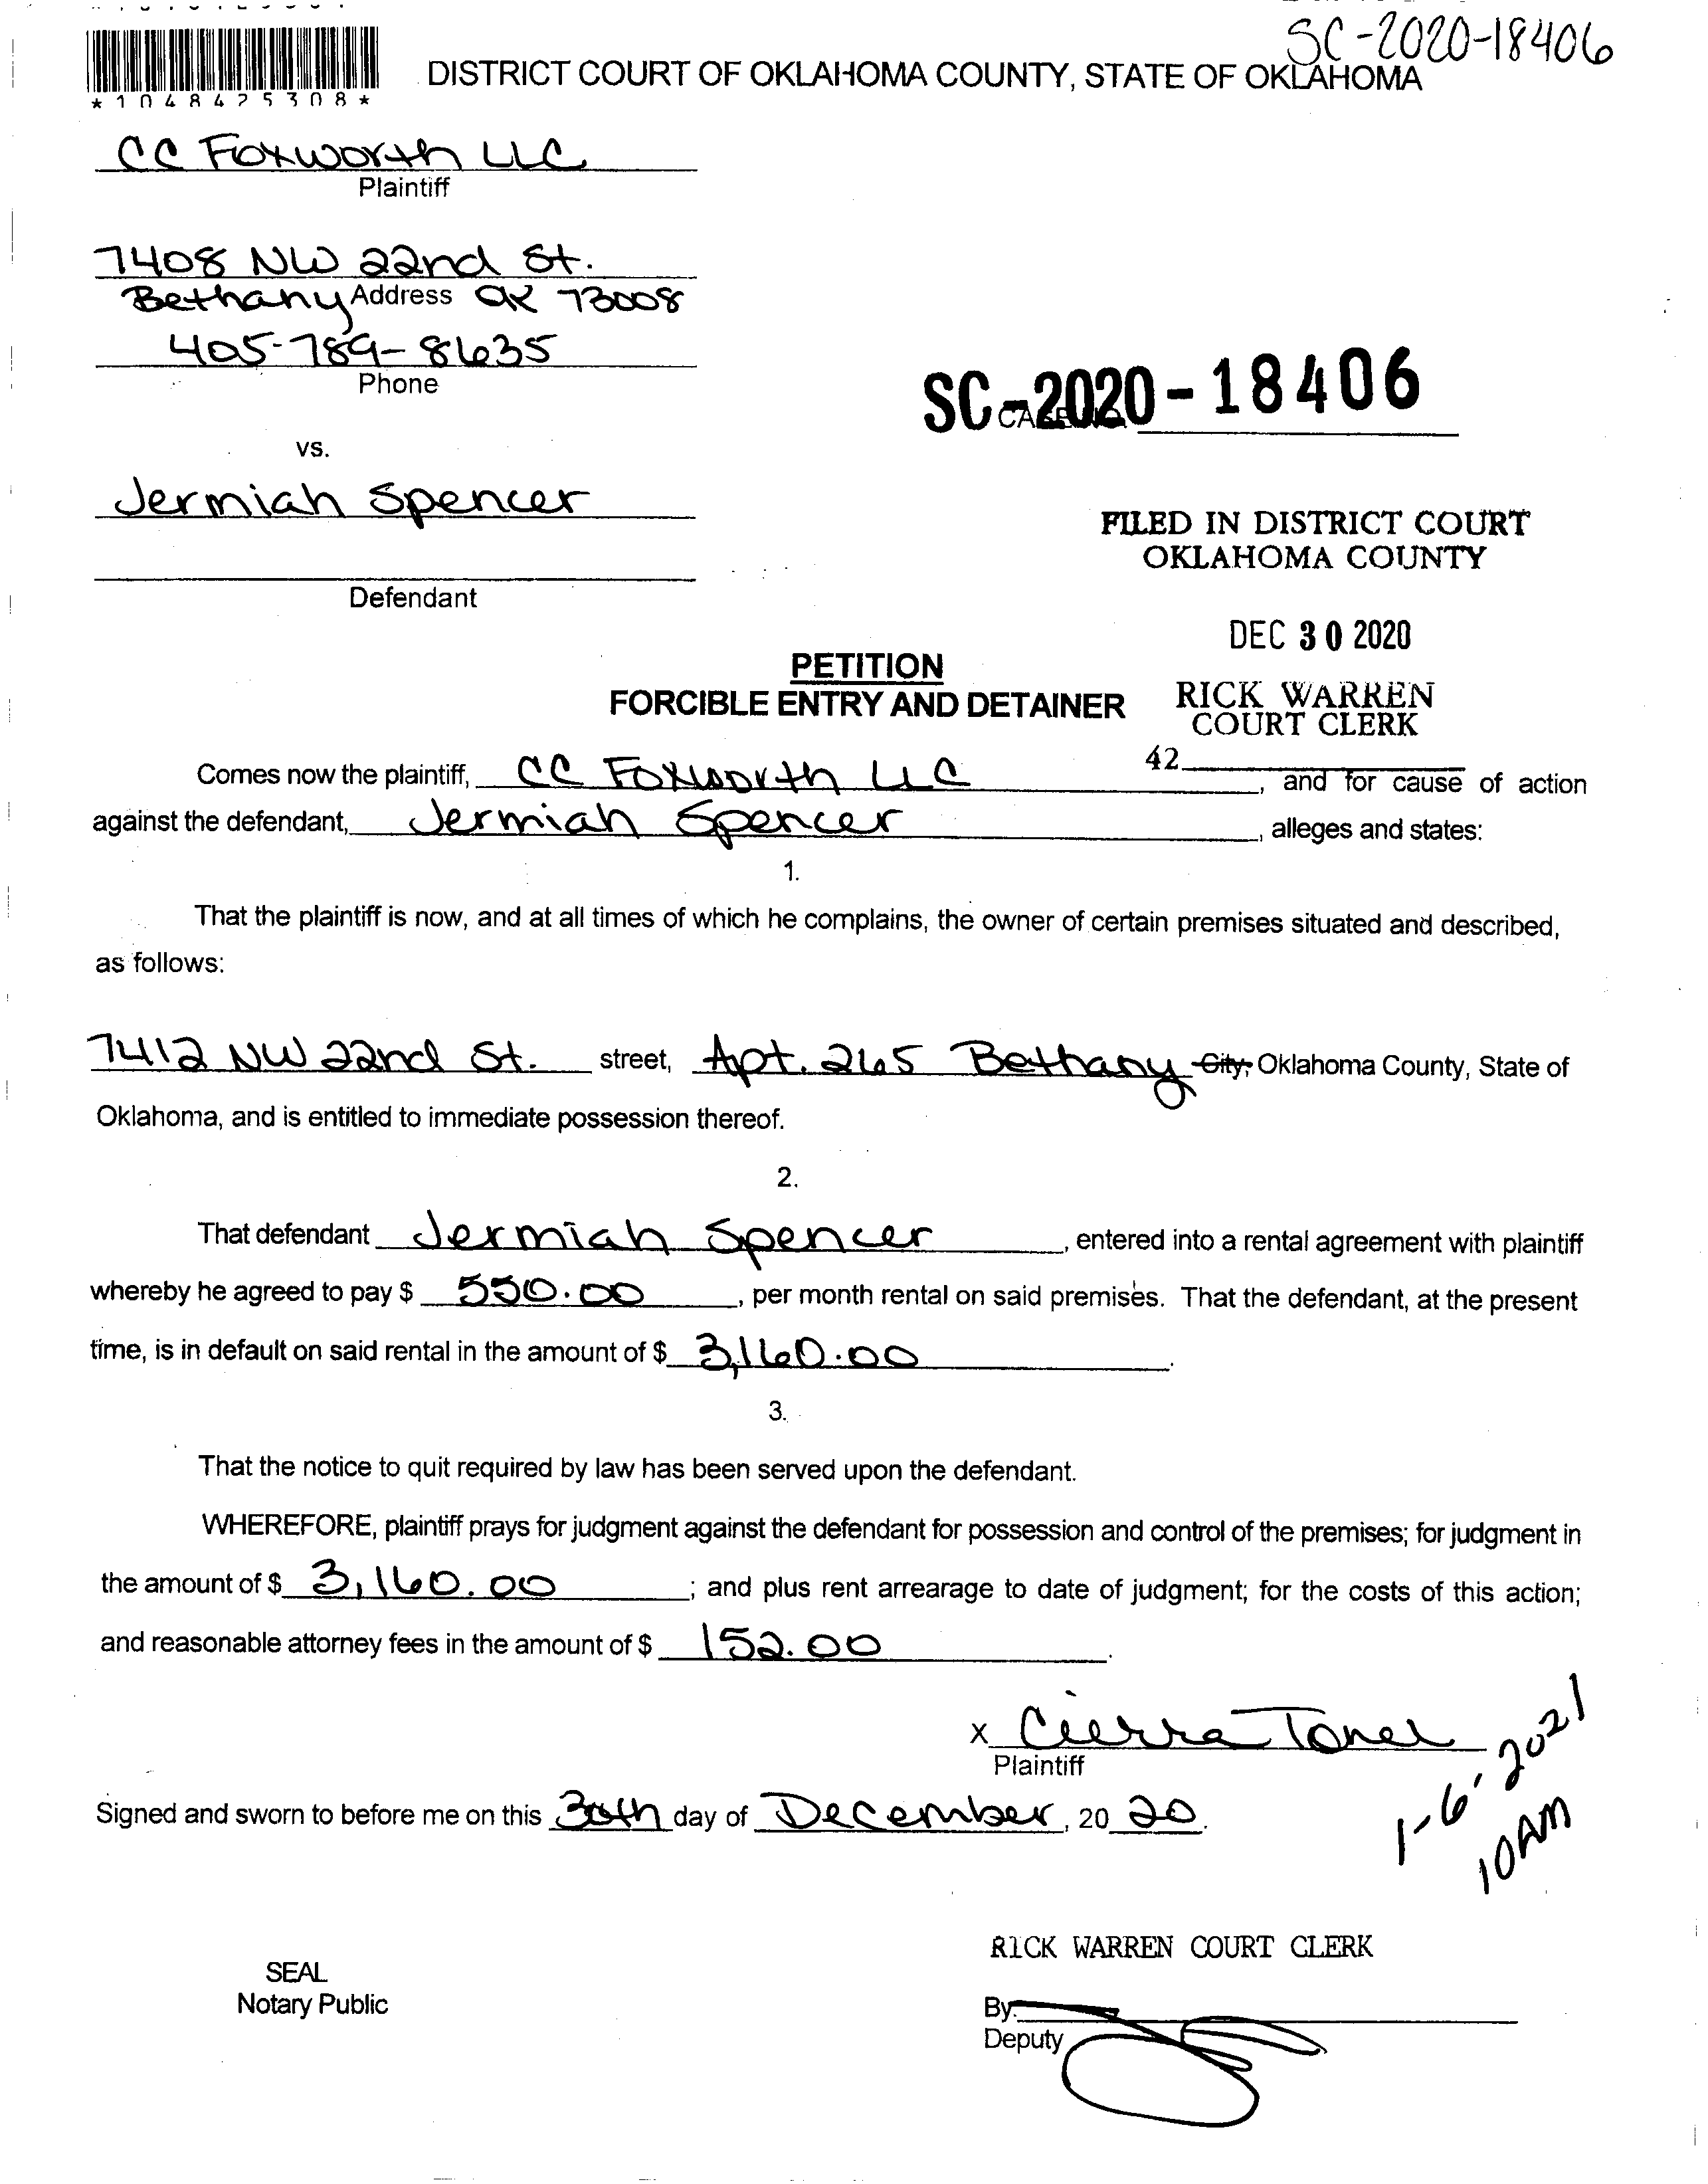 SC-2020-18406
*1048425308*
DISTRICT COURT OF OKLAHOMA COUNTY, STATE OF OKLAHOMA
CC Foxworth LLC
Plaintiff
7408 NW 22nd St.
Bethany Address OK 73008
405-789-8635
Phone
SC-2020-18406
CASE NO.
vs.
Jermiah Spencer
FILED IN DISTRICT COURT
OKLAHOMA COUNTY
Defendant
DEC 30 2020
PETITION
FORCIBLE ENTRY AND DETAINER
RICK WARREN
COURT CLERK
42
Comes now the plaintiff, CC Foxworth LLC, and for cause of action
against the defendant, Jermiah Spencer, alleges and states:
1.
That the plaintiff is now, and at all times of which he complains, the owner of certain premises situated and described,
as follows:
7412 NW 22nd St. street, Apt. 265 Bethany City, Oklahoma County, State of
Oklahoma, and is entitled to immediate possession thereof.
2.
That defendant Jermiah Spencer, entered into a rental agreement with plaintiff
whereby he agreed to pay $ 550.00, per month rental on said premises. That the defendant, at the present
time, is in default on said rental in the amount of $ 3,160.00.
3.
That the notice to quit required by law has been served upon the defendant.
WHEREFORE, plaintiff prays for judgment against the defendant for possession and control of the premises; for judgment in
the amount of $ 3,160.00; and plus rent arrearage to date of judgment; for the costs of this action;
and reasonable attorney fees in the amount of $ 152.00.
x Cierra Toner
Plaintiff
1-6-2021
10AM
Signed and sworn to before me on this 30th day of December, 20 20.
RICK WARREN COURT CLERK
SEAL
Notary Public
By:
Deputy